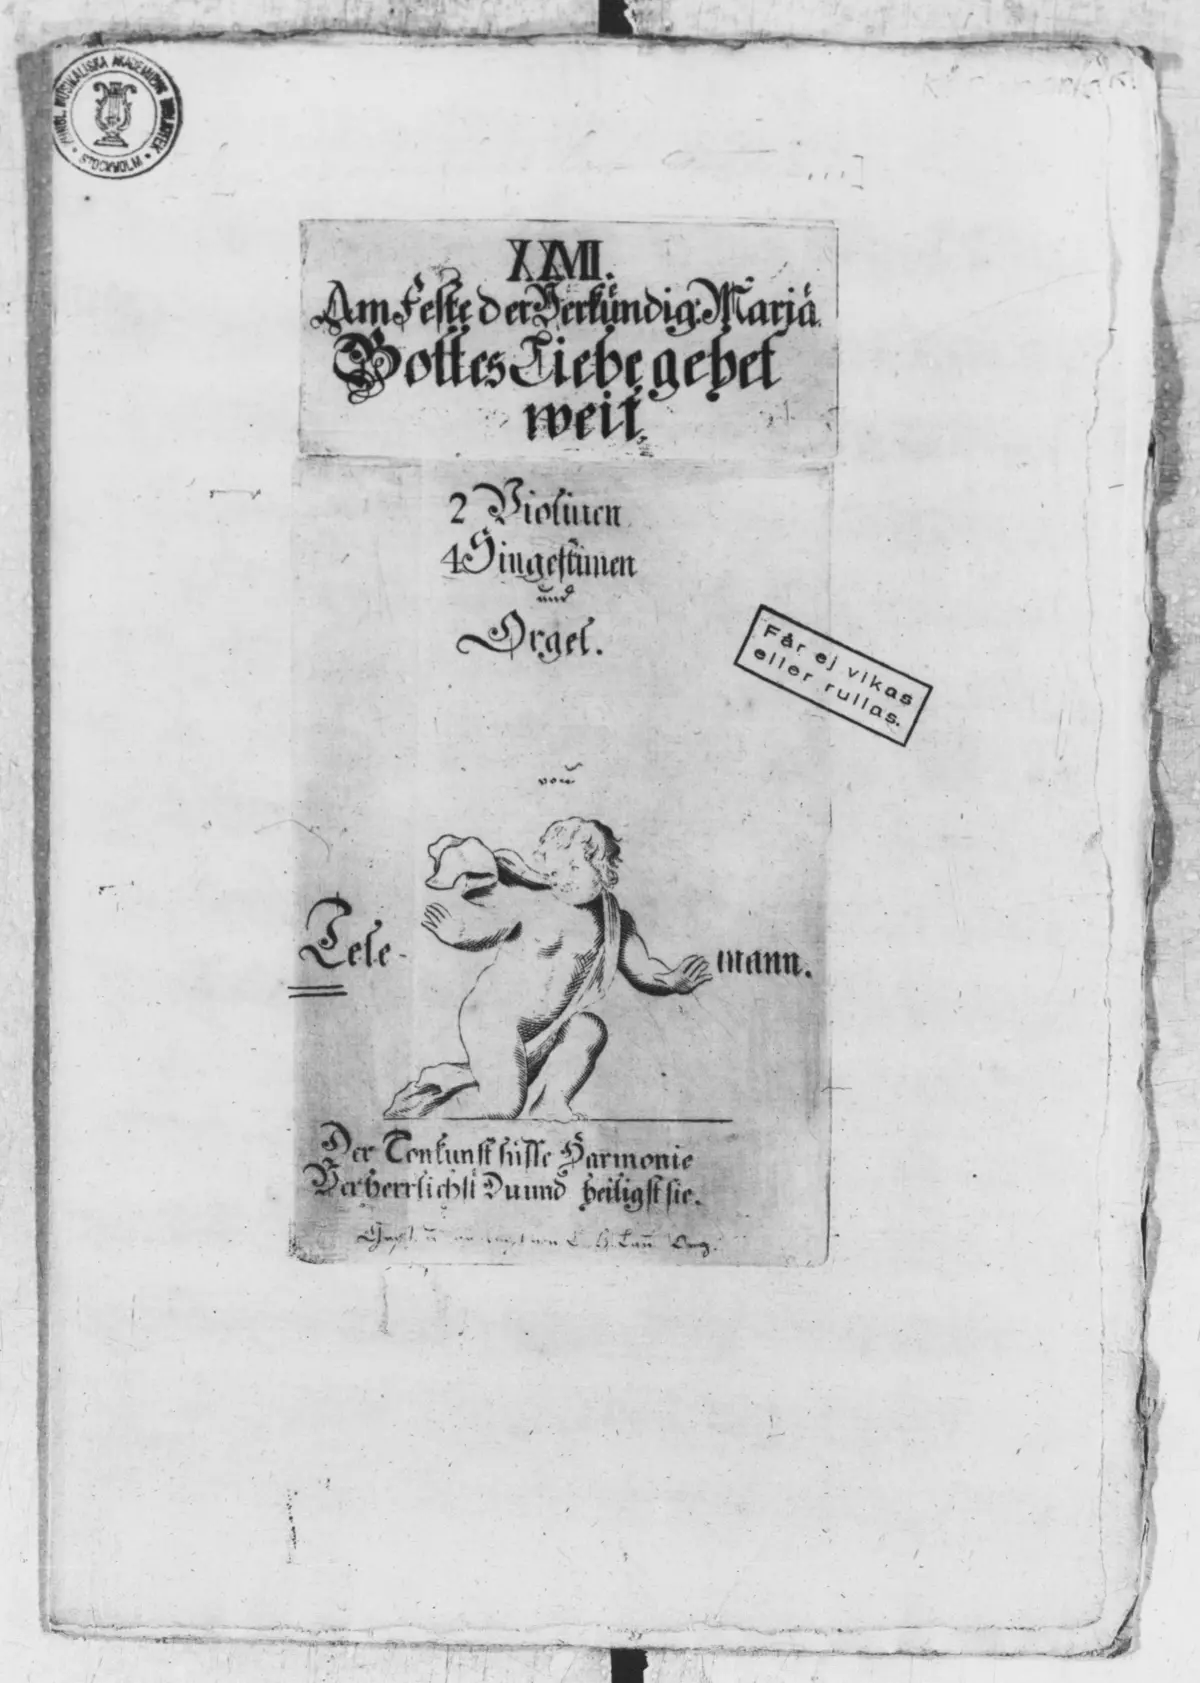 KUNGL. MUSIKALISKA AKADEMIENS BIBLIOTEK
• STOCKHOLM •
XXVII.
Am Feste der Verkündig: Mariä.
Gottes Liebe gehet
weit.
2 Violinen
4 Singestimen
und
Orgel.
Får ej vikas
eller rullas.
von
Tele-
mann.
Der Tonkunst süsse Harmonie
Verherrlichst Du und heiligst sie.